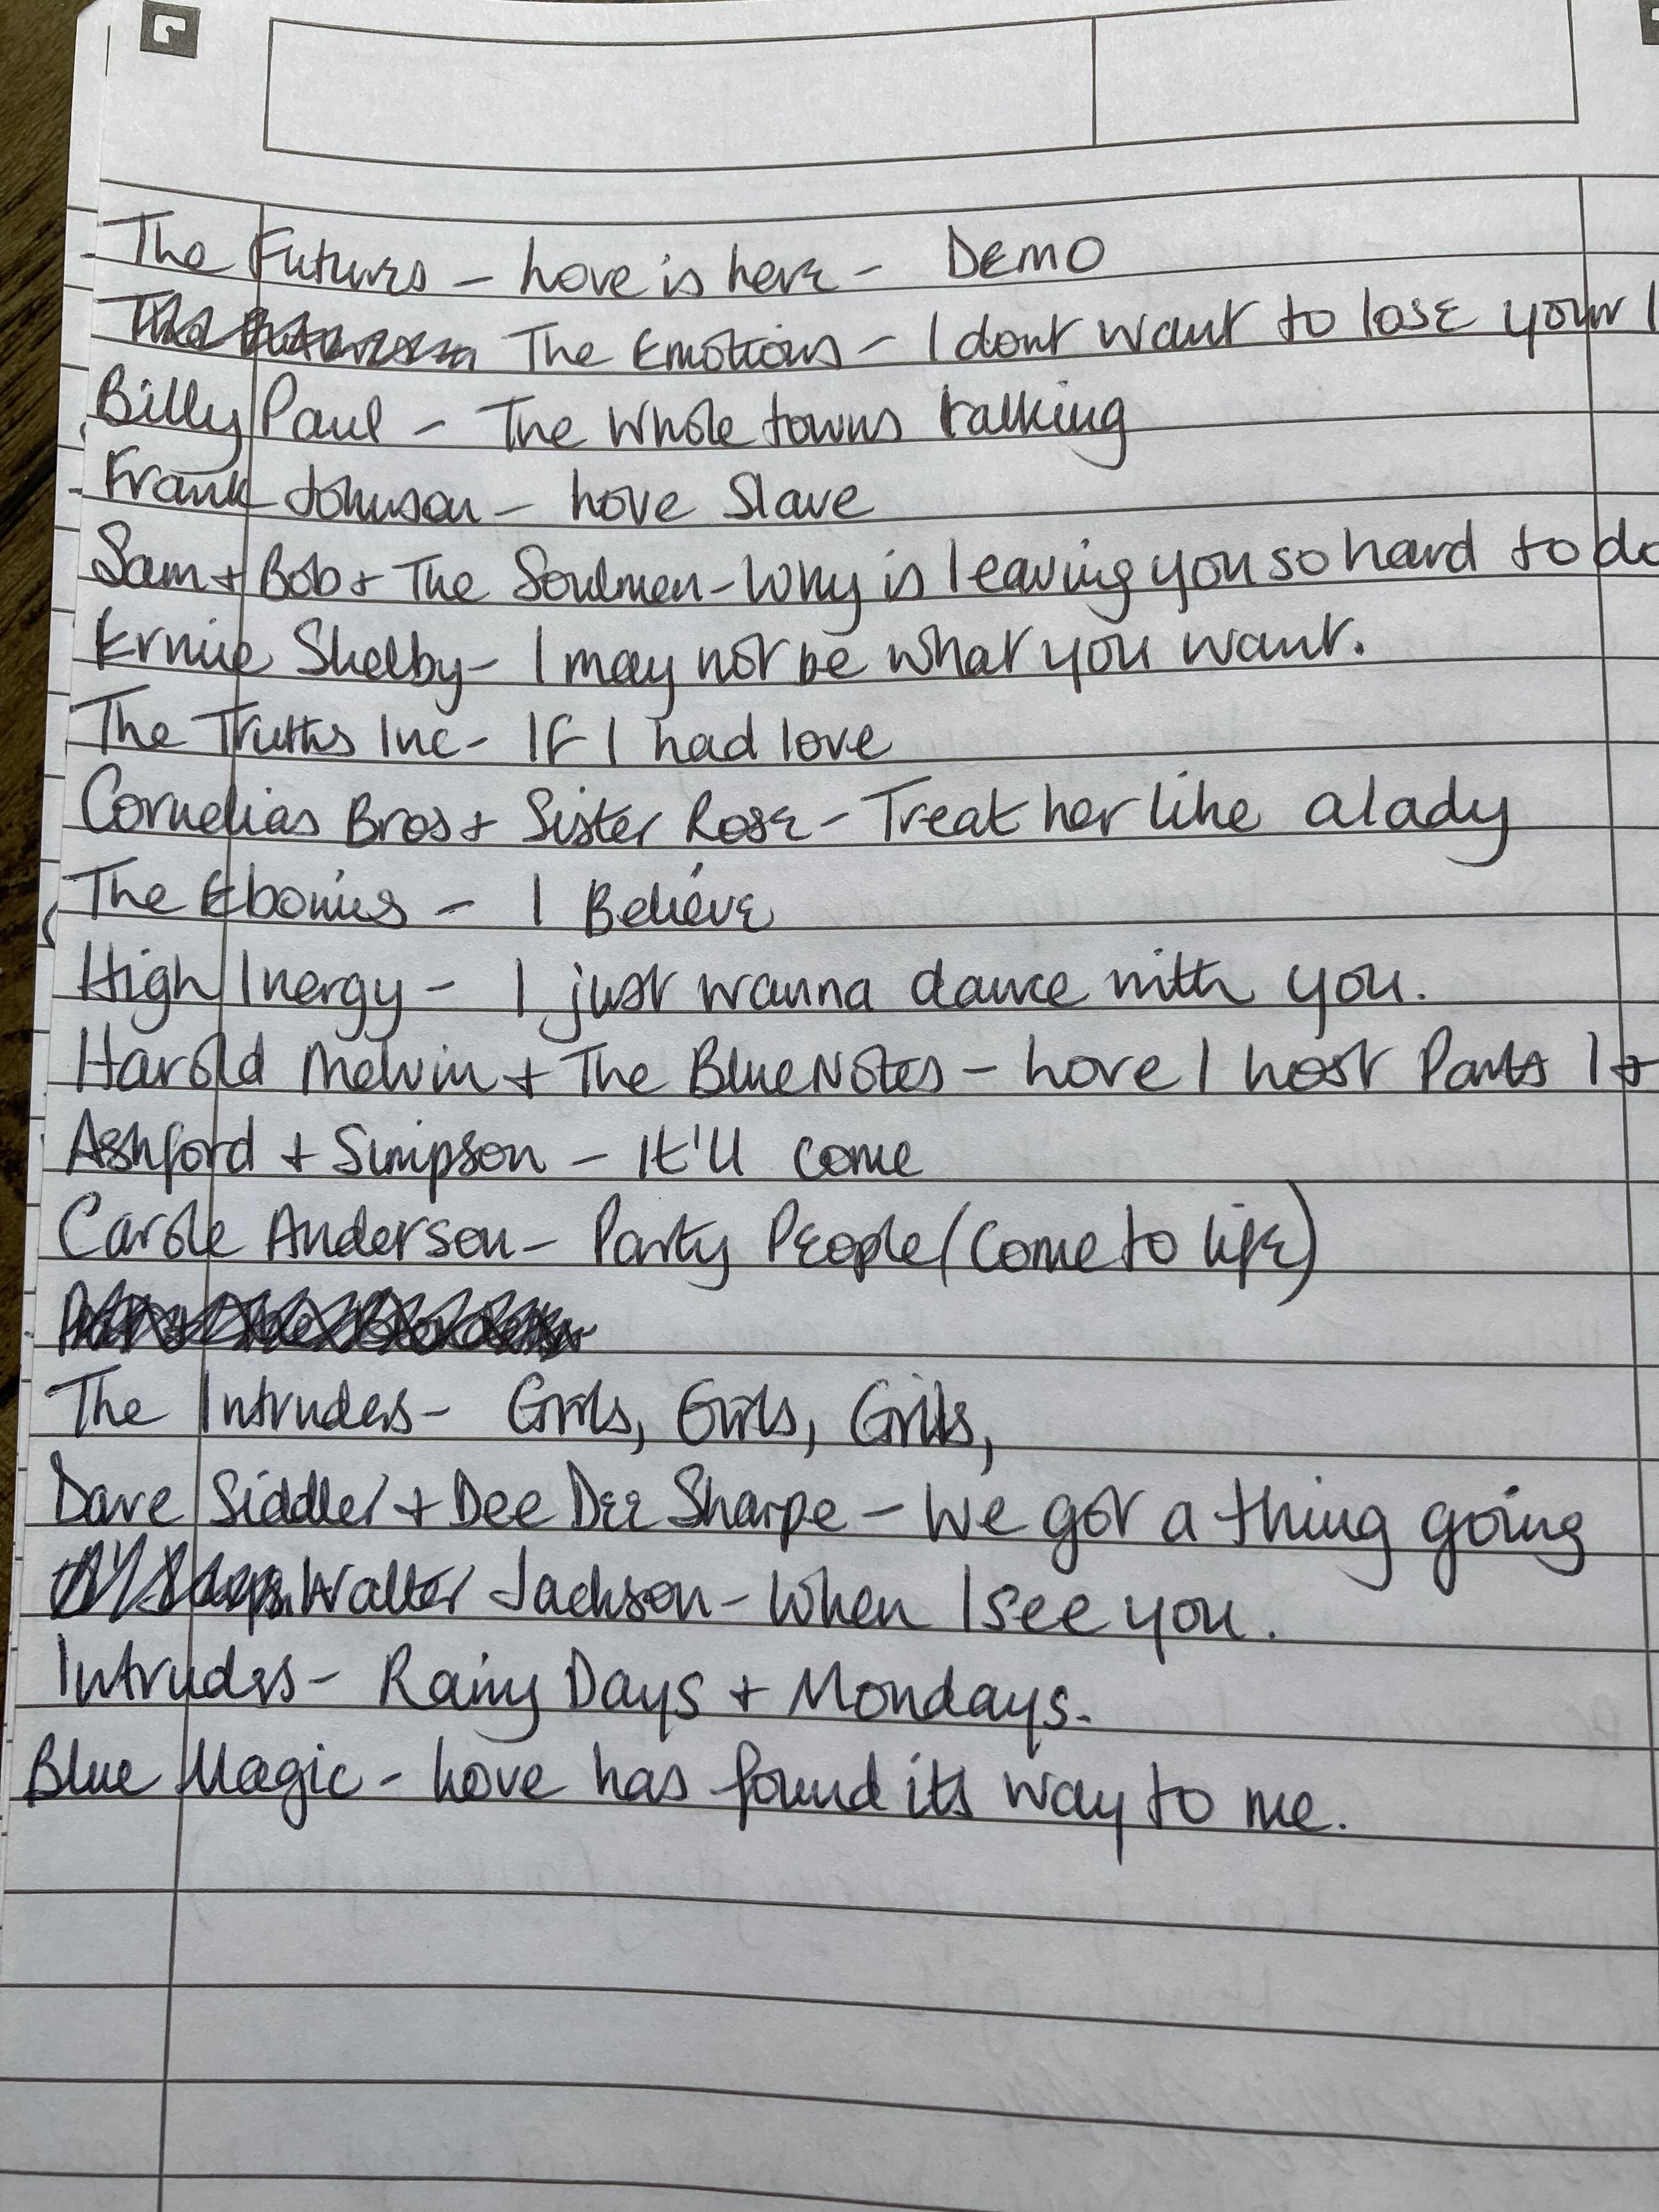 The Futures - Love is here - DEMO
The Emotions - I dont want to lose your
Billy Paul - The Whole towns talking
Frank Johnson - Love Slave
Sam + Bob + The Soulmen - Why is leaving you so hard to do
Ernie Shelby - I may not be what you want.
The Truths Inc - If I had love
Cornelias Bros + Sister Rose - Treat her like a lady
The Ebonies - I Believe
High Inergy - I just wanna dance with you.
Harold Melvin + The Blue Notes - Love I Lost Parts 1 +
Ashford + Simpson - It'll come
Carole Anderson - Party People (Come to life)
The Intruders - Girls, Girls, Girls,
Dave Siddler + Dee Dee Sharpe - We got a thing going
Walter Jackson - When I see you.
Intruders - Rainy Days + Mondays.
Blue Magic - Love has found its way to me.